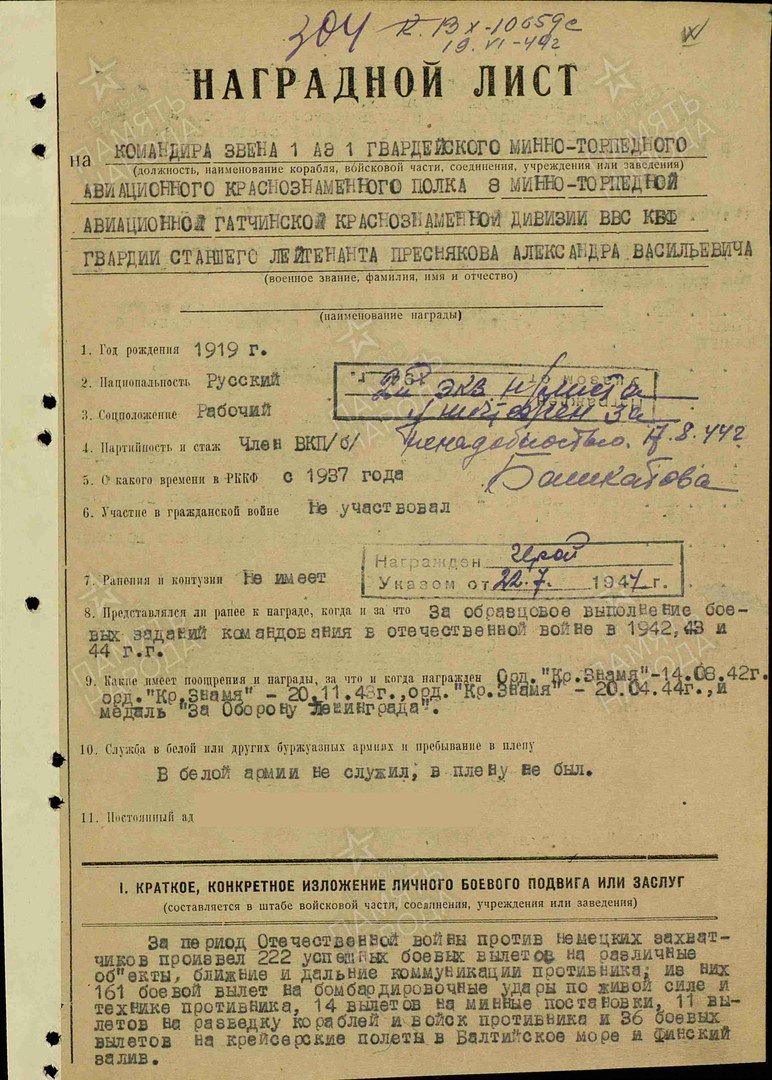 304 К. 13 Х-10659с
19.VI-44г
НАГРАДНОЙ ЛИСТ
на КОМАНДИРА ЗВЕНА 1 АЭ 1 ГВАРДЕЙСКОГО МИННО-ТОРПЕДНОГО
(должность, наименование корабля, войсковой части, соединения, учреждения или заведения)
АВИАЦИОННОГО КРАСНОЗНАМЕННОГО ПОЛКА 8 МИННО-ТОРПЕДНОЙ
АВИАЦИОННОЙ ГАТЧИНСКОЙ КРАСНОЗНАМЕННОЙ ДИВИЗИИ ВВС КБФ
ГВАРДИИ СТАРШЕГО ЛЕЙТЕНАНТА ПРЕСНЯКОВА АЛЕКСАНДРА ВАСИЛЬЕВИЧА
(военное звание, фамилия, имя и отчество)
(наименование награды)
1. Год рождения 1919 г.
2. Национальность Русский
2й экз н/листа
3. Соцположение Рабочий
уничтожен за
4. Партийность и стаж Член ВКП/б/
ненадобностью. 17.8.44г
5. С какого времени в РККФ с 1937 года
Башкатова
6. Участие в гражданской войне Не участвовал
Награжден Герой
7. Ранения и контузии Не имеет
Указом от 22.7. 1944 г.
8. Представлялся ли ранее к награде, когда и за что За образцовое выполнение бое-
вых заданий командования в отечественной войне в 1942,43 и
44 г.г.
9. Какие имеет поощрения и награды, за что и когда награжден Орд."Кр.Знамя"-14.08.42г.
орд."Кр.Знамя" - 20.11.43г.,орд."Кр.Знамя" - 20.04.44г.,и
медаль "За Оборону Ленинграда".
10. Служба в белой или других буржуазных армиях и пребывание в плену
В белой армии не служил, в плену не был.
11. Постоянный ад
I. КРАТКОЕ, КОНКРЕТНОЕ ИЗЛОЖЕНИЕ ЛИЧНОГО БОЕВОГО ПОДВИГА ИЛИ ЗАСЛУГ
(составляется в штабе войсковой части, соединения, учреждения или заведения)
За период Отечественной войны против немецких захват-
чиков произвел 222 успешных боевых вылетов на различные
об"екты, ближние и дальние коммуникации противника, из них
161 боевой вылет на бомбардировочные удары по живой силе и
технике противника, 14 вылетов на минные постановки, 11 вы-
летов на разведку кораблей и войск противника и 36 боевых
вылетов на крейсерские полеты в Балтийское море и Финский
залив.